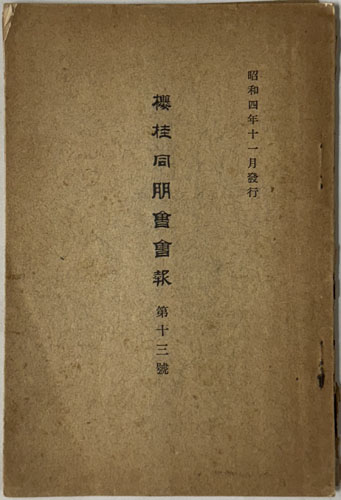 昭和四年十一月發行
櫻桂同朋會會報 第十三號